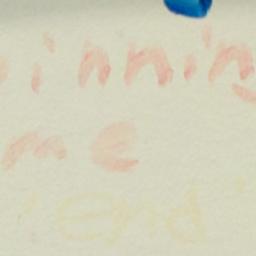 inning
me
'end'